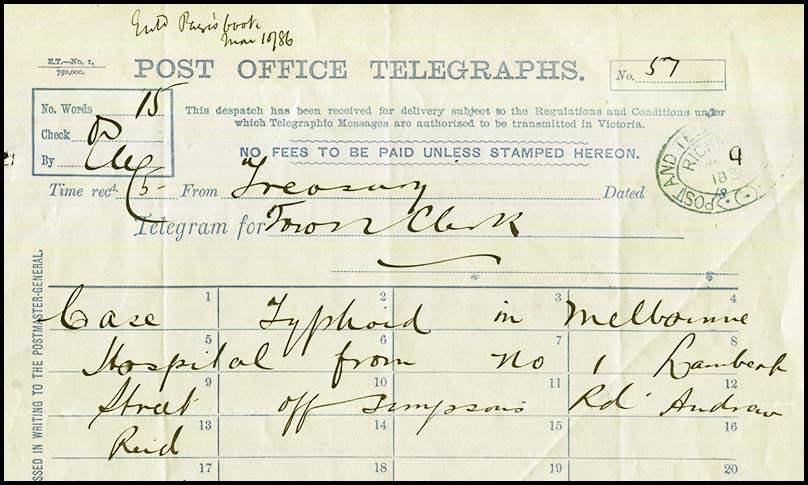 Entd Page's book
Mar 10/86
E.T.—No. 1.
750,000.
POST OFFICE TELEGRAPHS.
No. 57
No. Words 15
Check
By
This despatch has been received for delivery subject to the Regulations and Conditions under
which Telegraphic Messages are authorized to be transmitted in Victoria.
NO FEES TO BE PAID UNLESS STAMPED HEREON.
POST AND TE
RICHM
9
188
Time recd. 5 From Treasury Dated
Telegram for Town Clerk
1 2 3 4
Case Typhoid in Melbourne
5 6 7 8
Hospital from No 1 Lambert
9 10 11 12
Street off Simpsons Rd Andrew
13 14 15 16
Reid
17 18 19 20
SSED IN WRITING TO THE POSTMASTER-GENERAL.